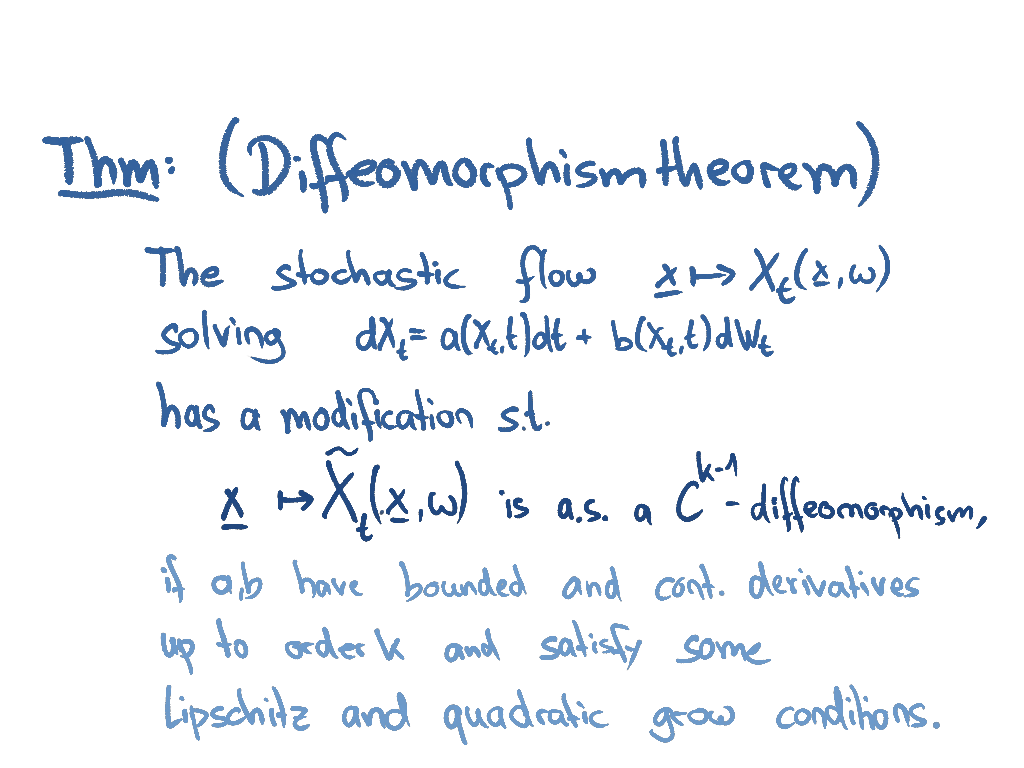 Thm: (Diffeomorphism theorem)
The stochastic flow x ↦ X_t(x,ω)
solving dX_t = a(X_t,t)dt + b(X_t,t)dW_t
has a modification s.t.
x ↦ X̃_t(x,ω) is a.s. a C^{k-1}-diffeomorphism,
if a,b have bounded and cont. derivatives
up to order k and satisfy some
Lipschitz and quadratic grow conditions.